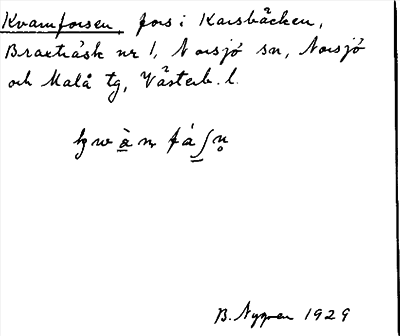 Kvarnforsen fors i Karsbäcken,
Braxträsk nr 1, Norsjö sn, Norsjö
och Malå tg, Västerb. l.
B. Nygren 1929